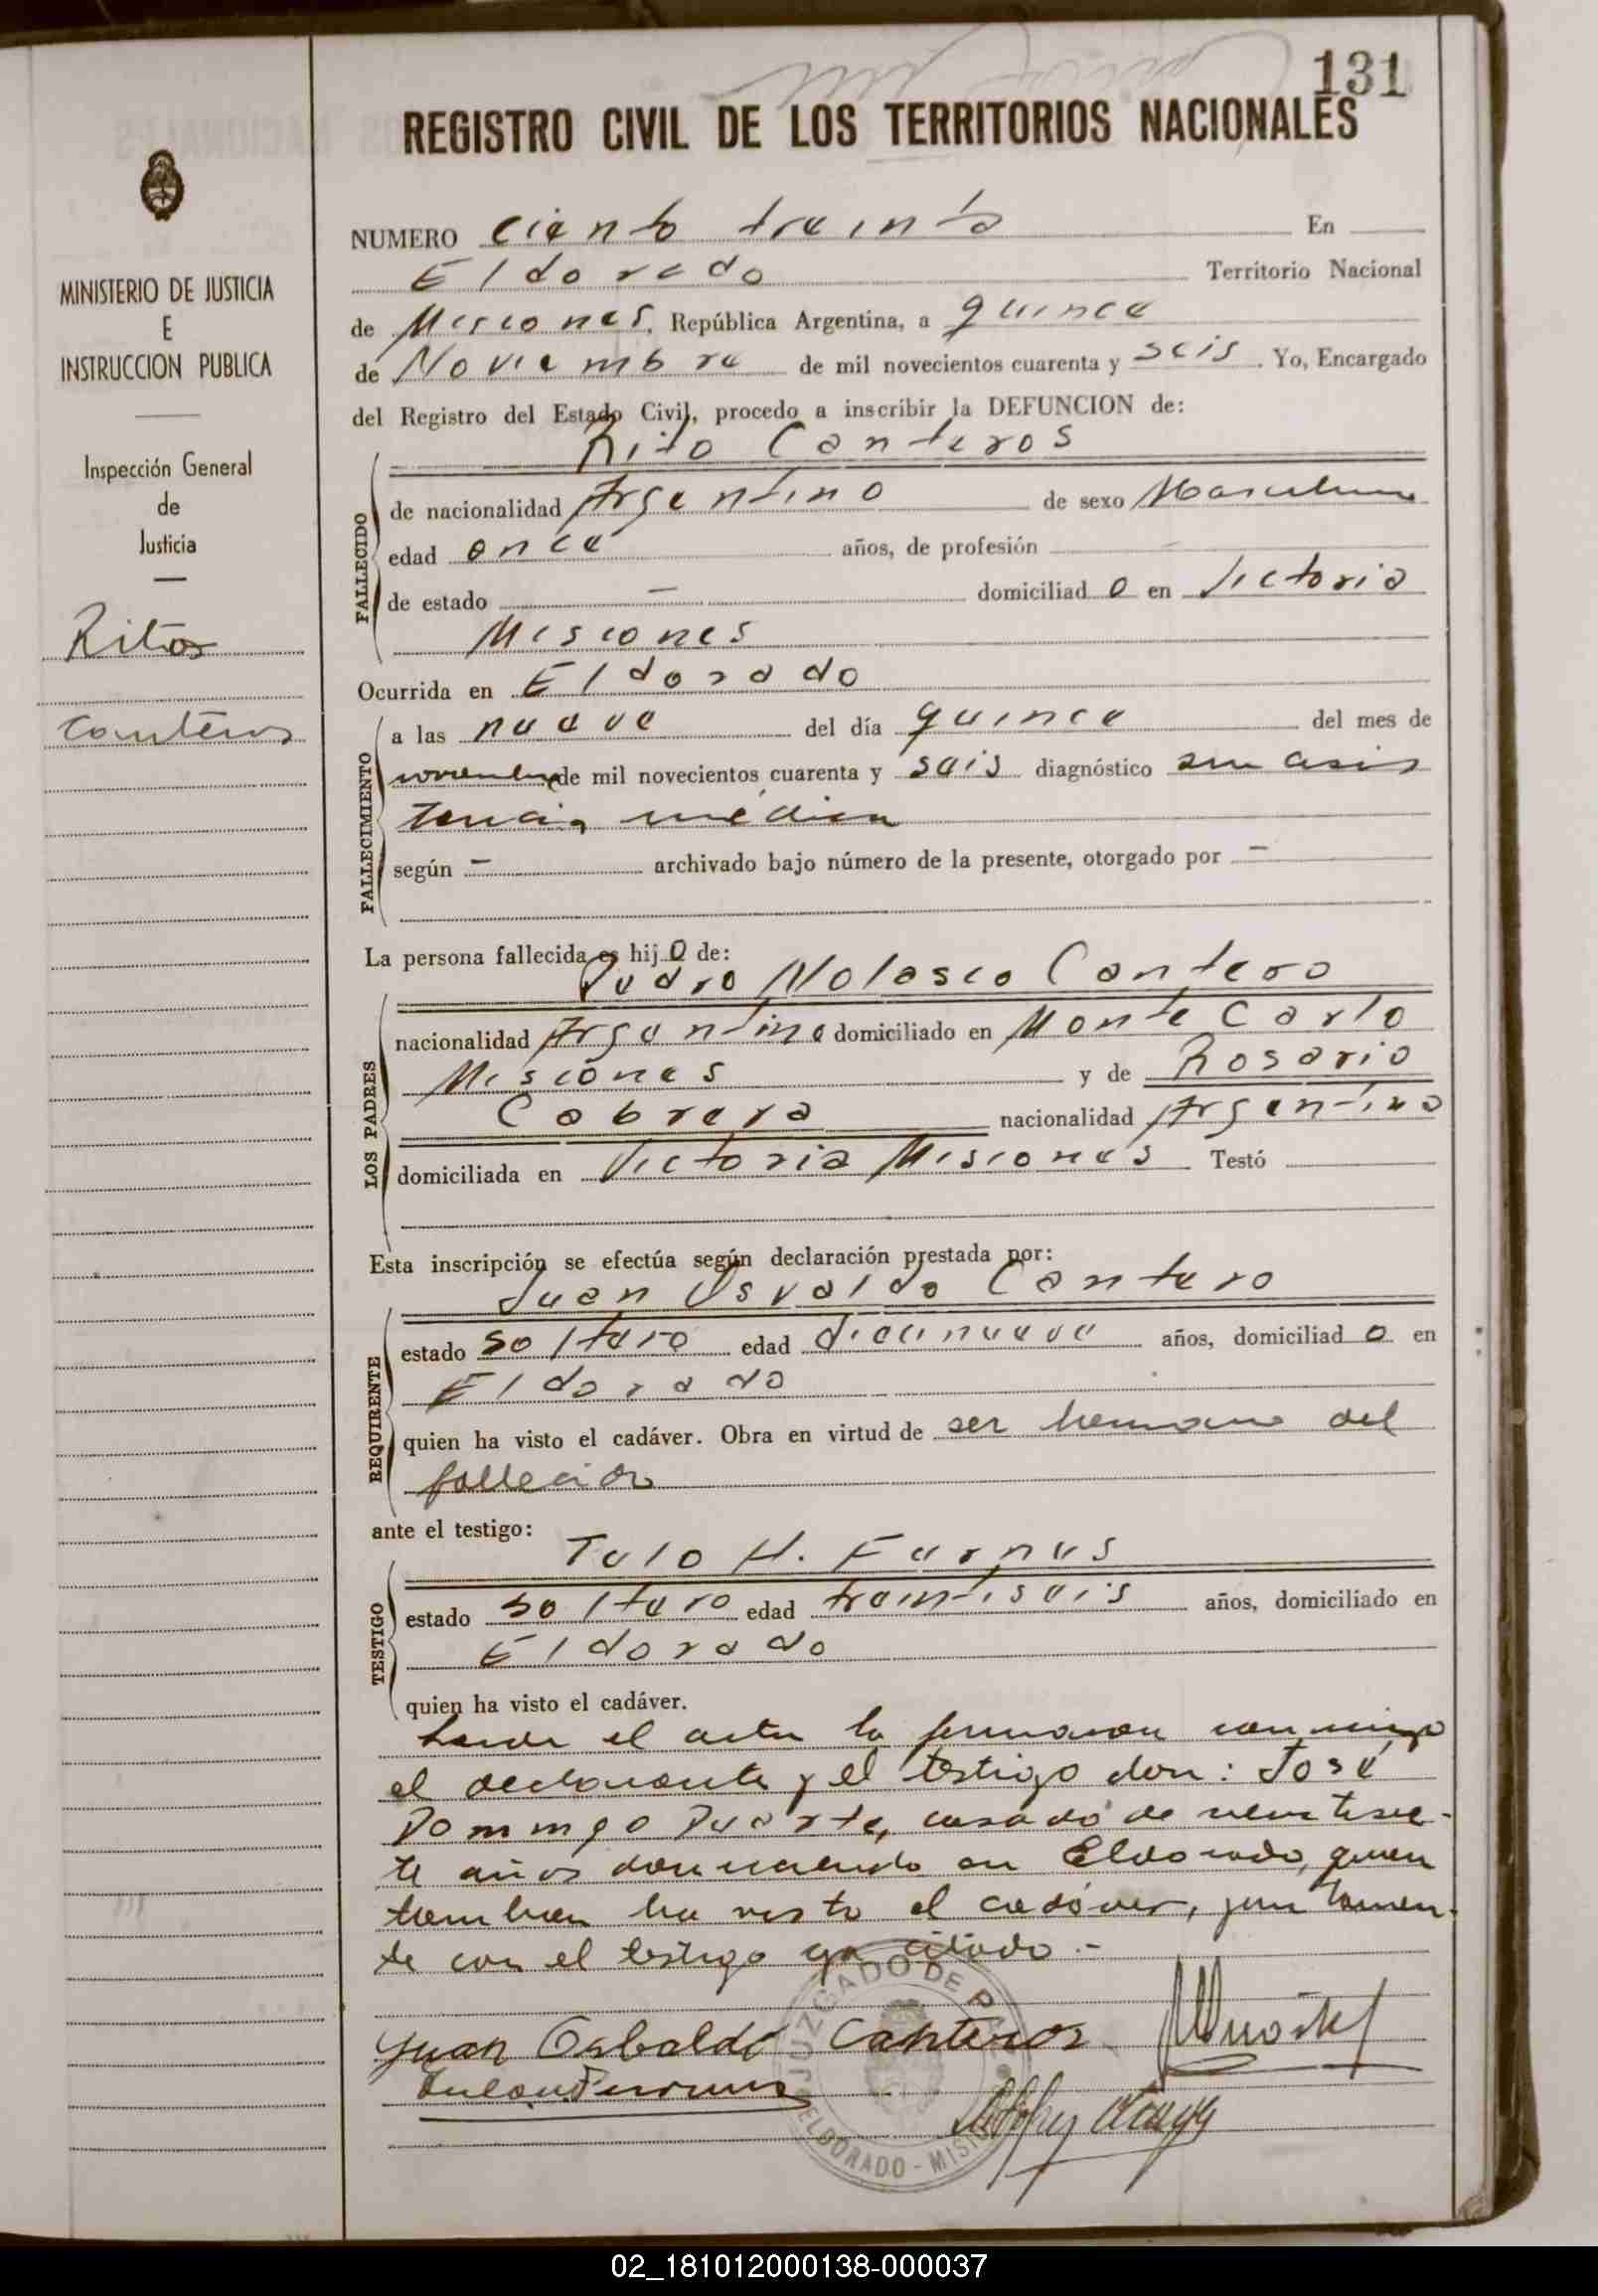 131
REGISTRO CIVIL DE LOS TERRITORIOS NACIONALES
MINISTERIO DE JUSTICIA
E
INSTRUCCION PUBLICA
Inspección General
de
Justicia
Ritos
Canteros
NUMERO Ciento treinta En
Eldorado Territorio Nacional
de Misiones, República Argentina, a quince
de Noviembre de mil novecientos cuarenta y seis. Yo, Encargado
del Registro del Estado Civil, procedo a inscribir la DEFUNCION de:
Rito Canteros
FALLECIDO
de nacionalidad Argentino de sexo Masculino
edad once años, de profesión
de estado — domiciliad o en Victoria
Misiones
Ocurrida en Eldorado
FALLECIMIENTO
a las nueve del día quince del mes de
noviembre de mil novecientos cuarenta y seis diagnóstico sin asis
tencia médica
según — archivado bajo número de la presente, otorgado por —
La persona fallecida es hijo de:
Pedro Nolasco Cantero
LOS PADRES
nacionalidad Argentino domiciliado en Monte Carlo
Misiones y de Rosario
Cabrera nacionalidad Argentina
domiciliada en Victoria Misiones Testó
Esta inscripción se efectúa según declaración prestada por:
Juan Osvaldo Cantero
REQUIRENTE
estado soltero edad diecinueve años, domiciliad o en
Eldorado
quien ha visto el cadáver. Obra en virtud de ser hermano del
fallecido
ante el testigo:
Tulo H. Fernus
TESTIGO
estado soltero edad treintiseis años, domiciliado en
Eldorado
quien ha visto el cadáver.
el acta la firmaron conmigo
el declarante y el testigo don: José
Domingo Duarte, casado de veintisie-
te años domiciliado en Eldorado, quien
tambien ha visto el cadáver, juntamen-
te con el testigo ya citado.-
Juan Osbaldo Canteros
JUZGADO DE PAZ
ELDORADO - MISIONES
02_181012000138-000037